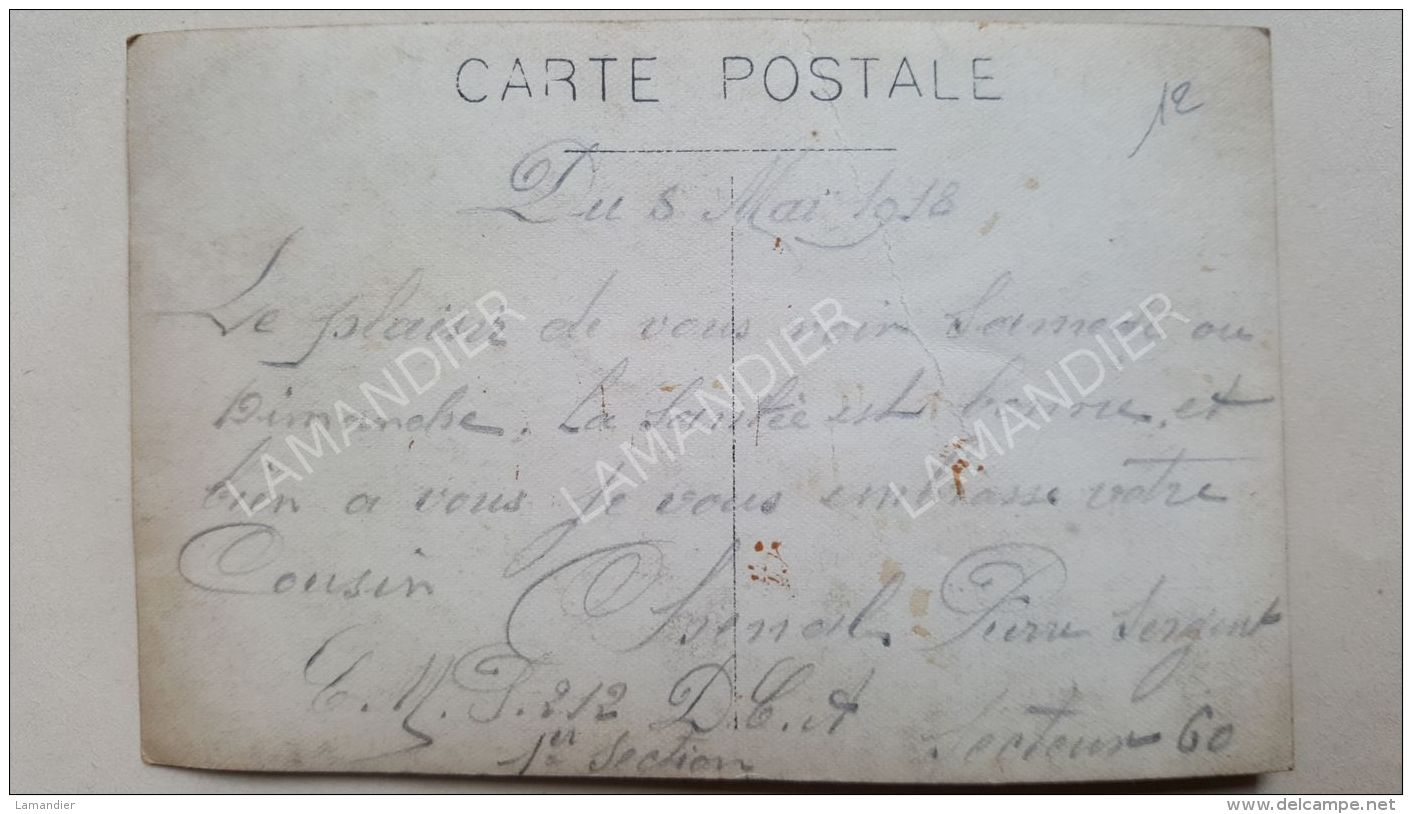 CARTE POSTALE
12
Du 5 Mai 1918
Le plaisir de vous voir Samedi ou
Dimanche. La Santée est bonne, et
bien a vous je vous embrasse votre
Cousin Pierre Sergent
C.M.T. 212 D.C.A
1er Section Secteur 60
LAMANDIER LAMANDIER LAMANDIER
Lamandier
www.delcampe.net